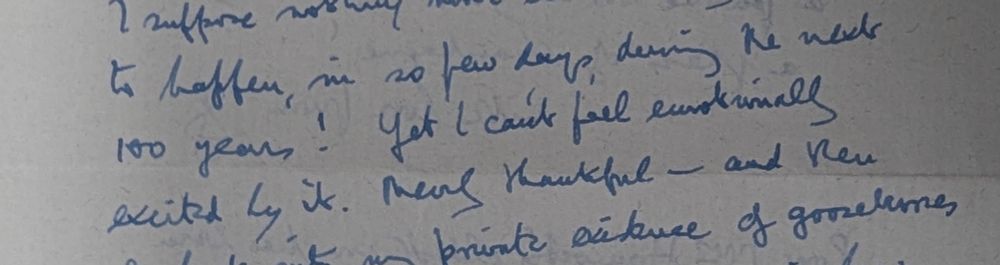 I suppose nothing
to happen, in so few days, during the next
100 years! Yet I can't feel emotionally
excited by it. Merely thankful — and then
my private existence of gooseberries